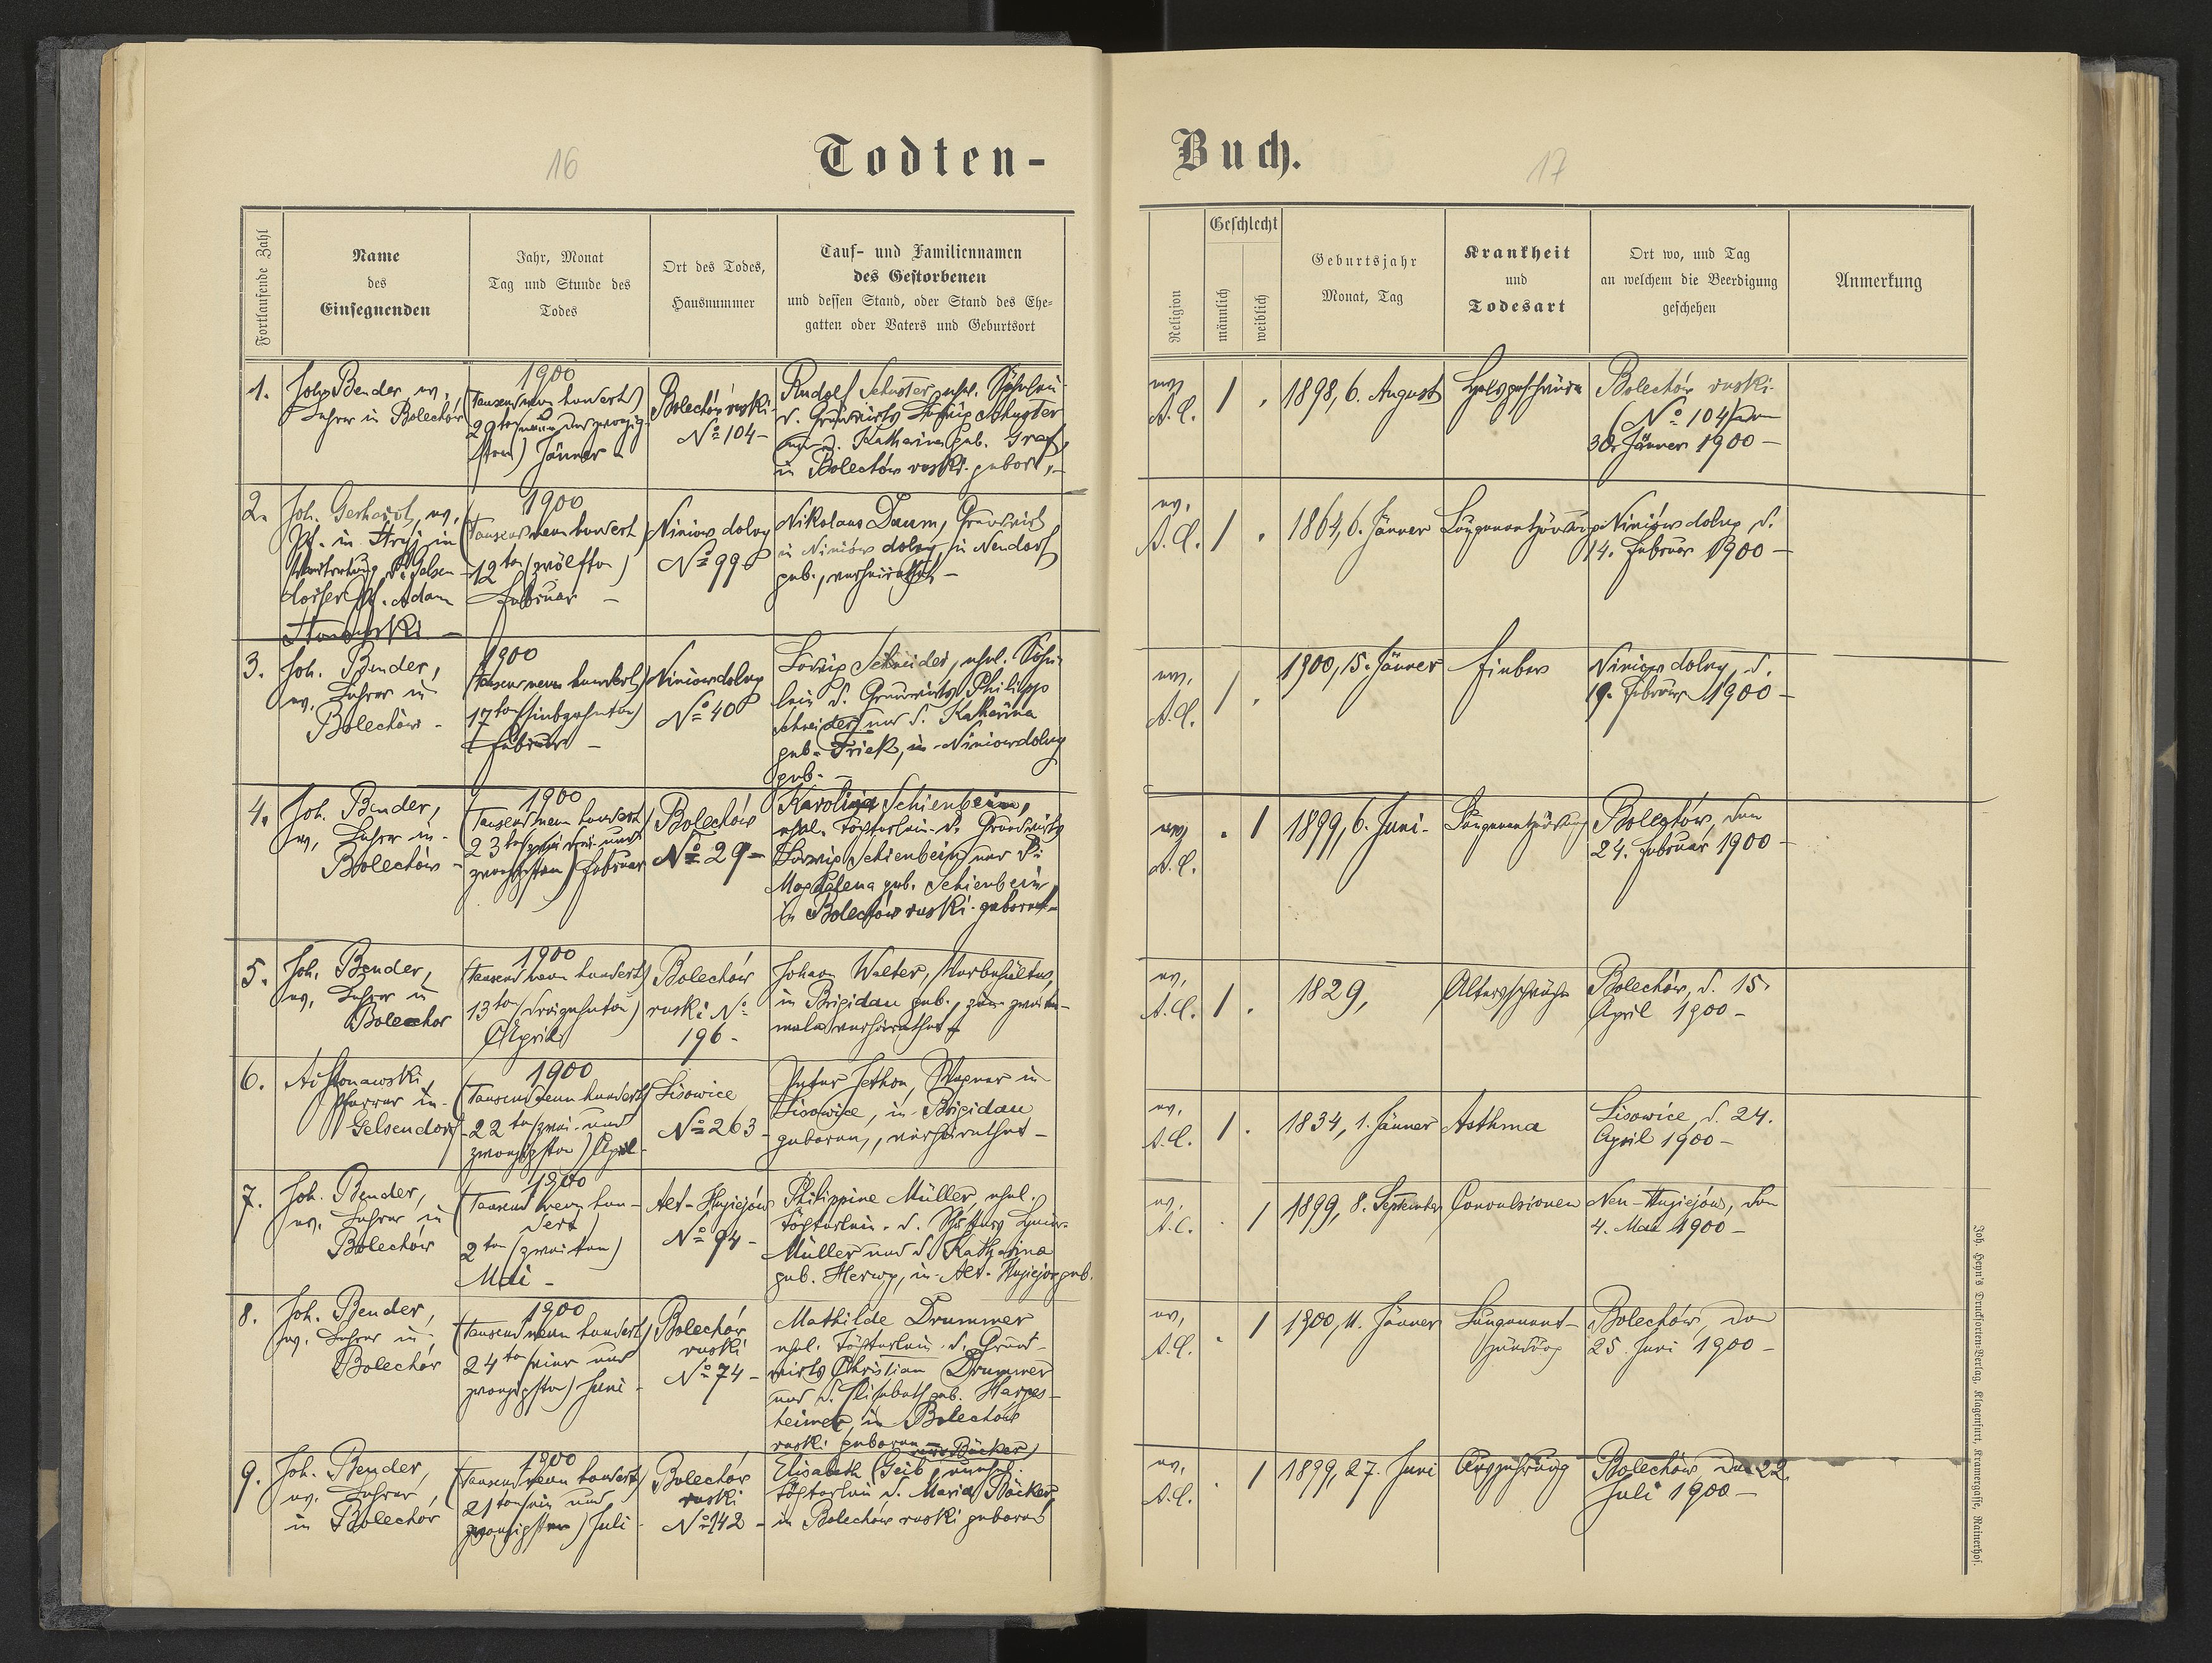 16
Todten-
Fortlaufende Zahl
Name
des
Einsegnenden
Jahr, Monat
Tag und Stunde des
Todes
Ort des Todes,
Hausnummer
Tauf- und Familiennamen
des Gestorbenen
und dessen Stand, oder Stand des Ehe-
gatten oder Vaters und Geburtsort
1.
Joh. Bender, ev.
Lehrer in Bolechów
1900
(Tausend neun hundert)
Jänner
Bolechów ruski
Nº 104 –
Rudolf Schuster, ehel. Söhnlein
d. Grundwirts Ludwig Schuster
und d. Katharina geb. Graf,
in Bolechów ruski geboren
2.
Joh. Gerhardt, ev.
Pf. in Stryj in
Vertretung d. Gelsen-
dorfer Pf. Adam
Stonawski –
1900
(Tausend neun hundert
12ten (zwölften)
Februar –
Niniów dolny
Nº 99
Nikolaus Daum, Grundwirt
in Niniów dolny, in Neudorf
geb., verheirathet –
3.
Joh. Bender,
ev. Lehrer in
Bolechów –
1900
(Tausend neun hundert)
17ten (siebzehnten)
Februar –
Niniów dolny
Nº 40
Ludwig Schneider, ehel. Söhn-
lein d. Grundwirts Philipp
Schneider und d. Katharina
geb. Friek, in Niniów dolny
geb. –
4.
Joh. Bender,
ev. Lehrer in
Bolechów –
1900
(Tausend neun hundert
23ten (drei und
zwanzigsten) Februar
Bolechów
Nº 29 –
Karolina Schienbein,
ehel. Töchterlein d. Grundwirts
Ludwig Schienbein und d.
Magdalena geb. Schienbein
in Bolechów ruski geboren –
5.
Joh. Bender,
ev. Lehrer in
Bolechów
1900
(Tausend neun hundert)
13ten (dreizehnten)
April
Bolechów
ruski Nº
196 –
Johann Walter,
in Brigidau geb., zum zweiten-
male verheirathet –
6.
A. Stonawski,
Pfarrer in
Gelsendorf
1900
(Tausend neun hundert)
22ten (zwei und
zwanzigsten) April
Lisowice
Nº 263 –
Peter Jethon, Wagner in
Lisowice, in Brigidau
geboren, verheirathet –
7.
Joh. Bender,
ev. Lehrer in
Bolechów
1900
(Tausend neun hun-
dert)
2ten (zweiten)
Mai –
Alt-Hugiejów
Nº 94 –
Philippine Müller, ehel.
Töchterlein d.
Müller und d. Katharina
geb. Herwy, in Alt-Hugiejów geb.
8.
Joh. Bender,
ev. Lehrer in
Bolechów
1900
(Tausend neun hundert)
24ten (vier und
zwanzigsten) Juni –
Bolechów
ruski
Nº 74 –
Mathilde Drummer
ehel. Töchterlein d. Grund-
wirts Christian Drummer
und d. Elisabeth geb. Harges-
heimer, in Bolechów
ruski geboren –
9.
Joh. Bender,
ev. Lehrer,
in Bolechów
1900
(Tausend neun hundert)
21ten (ein und
zwanzigsten) Juli –
Bolechów
ruski
Nº 142 –
Bäcker)
Elisabeth (Geib, unehel.
Töchterlein d. Maria Bäcker,
in Bolechów ruski geboren
17
Buch.
Religion
Geschlecht
männlich
weiblich
Geburtsjahr
Monat, Tag
Krankheit
und
Todesart
Ort wo, und Tag
an welchem die Beerdigung
geschehen
Anmerkung
ev.
A. C.
1898, 6. August
Halsgeschwür
Bolechów ruski
(Nº 104) den
30. Jänner 1900 –
ev.
A. C.
1864, 6. Jänner
Lungenentzündung
Niniów dolny d.
14. Februar 1900 –
ev.
A. C.
1900, 15. Jänner
Fieber
Niniów dolny, d.
19. Februar 1900 –
ev.
A. C.
1899, 6. Juni –
Lungenentzündung
Bolechów, den
24. Februar 1900 –
ev.
A. C.
1829,
Altersschwäche
Bolechów, d. 15.
April 1900 –
ev.
A. C.
1834, 1. Jänner
Asthma
Lisowice, d. 24.
April 1900 –
ev.
A. C.
1899, 8. September
Convulsionen
Neu-Hugiejów, den
4. Mai 1900 –
ev.
A. C.
1900, 11. Jänner
Lungenent-
zündung
Bolechów, den
25. Juni 1900 –
ev.
A. C.
1899, 27. Juni
Auszehrung
Bolechów, den 22.
Juli 1900 –
Joh. Heyn's Drucksorten-Verlag, Klagenfurt, Kramergasse, Rainerhof.